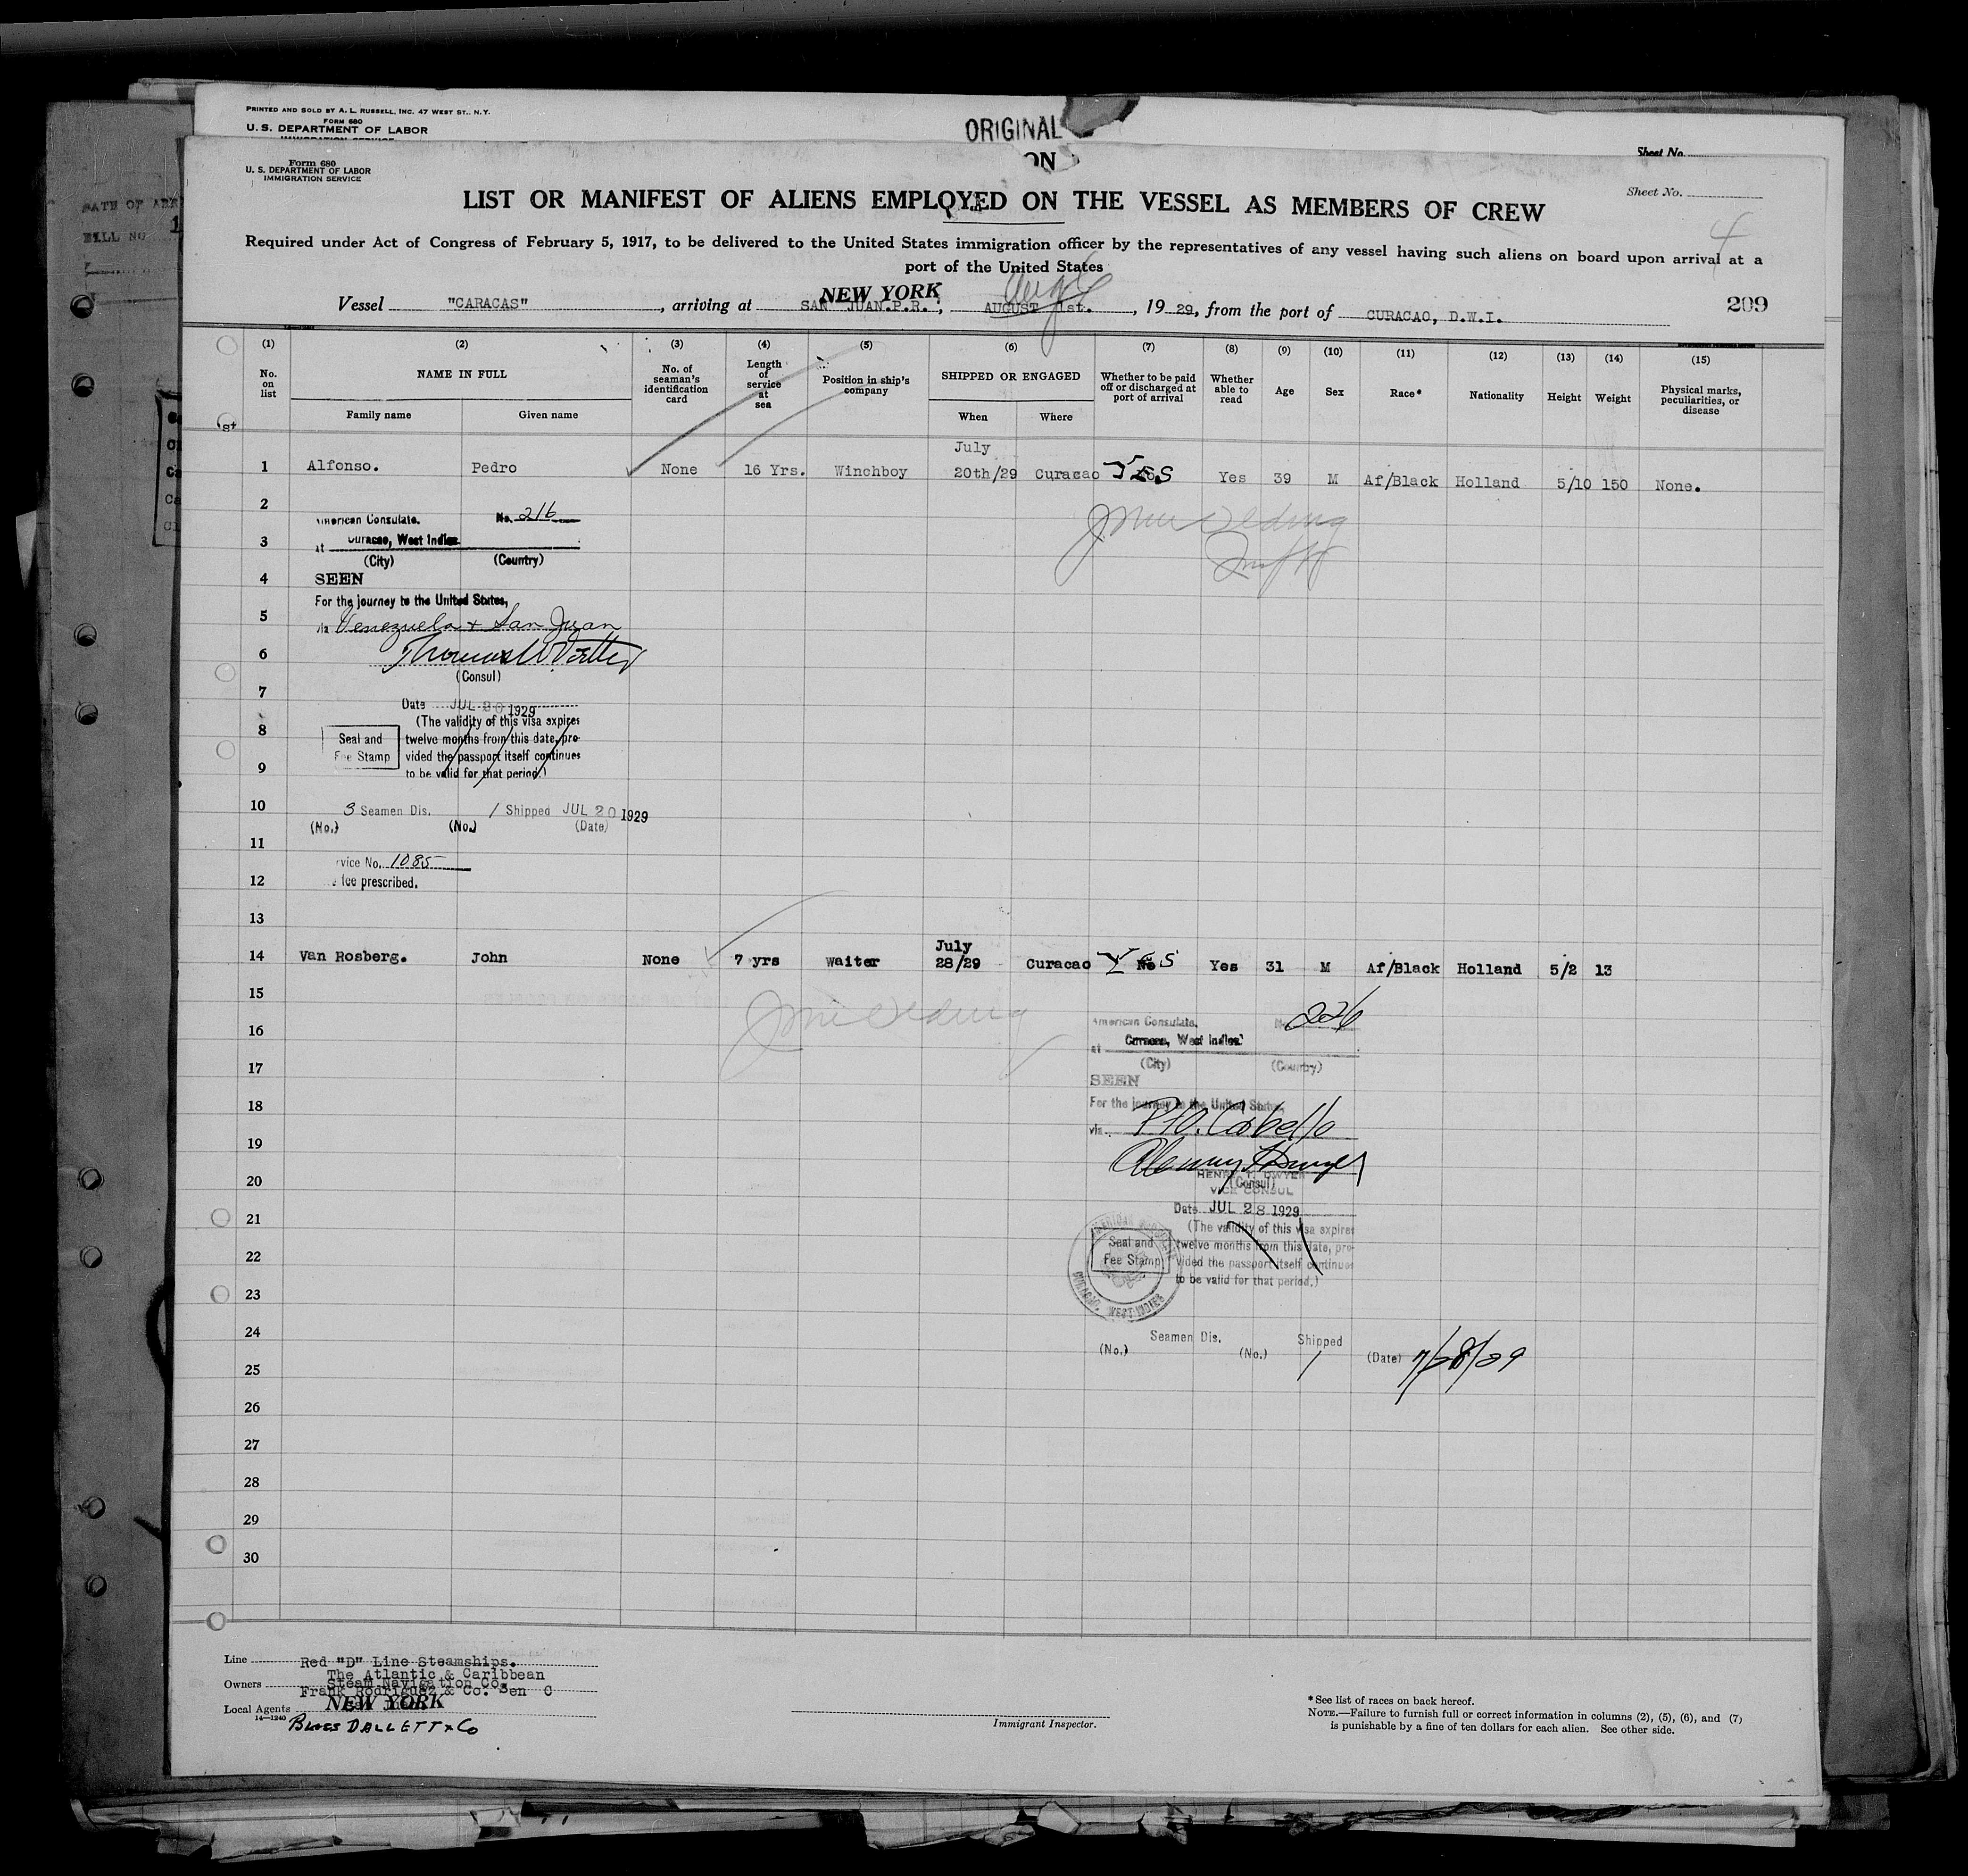 PRINTED AND SOLD BY A. L. RUSSELL, INC. 47 WEST ST., N. Y.
FORM 680
U. S. DEPARTMENT OF LABOR
IMMIGRATION SERVICE
ORIGINAL
ON
Sheet No.
Form 680
U. S. DEPARTMENT OF LABOR
IMMIGRATION SERVICE
Sheet No.
4
LIST OR MANIFEST OF ALIENS EMPLOYED ON THE VESSEL AS MEMBERS OF CREW
Required under Act of Congress of February 5, 1917, to be delivered to the United States immigration officer by the representatives of any vessel having such aliens on board upon arrival at a
port of the United States
NEW YORK Aug 6
Vessel "CARACAS", arriving at SAN JUAN.P.R., AUGUST 1st., 1929, from the port of CURACAO, D.W.I. 209
(1) (2) (3) (4) (5) (6) (7) (8) (9) (10) (11) (12) (13) (14) (15)
No. on list
NAME IN FULL
Family name
Given name
No. of seaman's identification card
Length of service at sea
Position in ship's company
SHIPPED OR ENGAGED
When
Where
Whether to be paid off or discharged at port of arrival
Whether able to read
Age
Sex
Race*
Nationality
Height
Weight
Physical marks, peculiarities, or disease
July
1 Alfonso. Pedro None 16 Yrs. Winchboy 20th/29 Curacao YES Yes 39 M Af/Black Holland 5/10 150 None.
2
American Consulate. No. 216
3
at Curacao, West Indies
(City) (Country)
4 SEEN
For the journey to the United States,
5 via Venezuela + San Juan
6
(Consul)
7
Date JUL 20 1929
(The validity of this visa expires
8
Seal and Fee Stamp
twelve months from this date, pro-
vided the passport itself continues
9
to be valid for that period.)
10 3 Seamen Dis. 1 Shipped JUL 20 1929
(No.) (No.) (Date)
11
vice No. 1085
12
fee prescribed.
13
July
14 Van Rosberg. John None 7 yrs Waiter 28/29 Curacao No YES Yes 31 M Af/Black Holland 5/2 13
15
16
American Consulate, No. 226
at Curacao, West Indies
17
(City) (Country)
SEEN
18
For the journey to the United States,
via Pto. Cabello
19
20
HENRY T. DWYER
(Consul)
VICE CONSUL
21
Date JUL 28 1929
(The validity of this visa expires
22
Seal and Fee Stamp
twelve months from this date, pro-
vided the passport itself continues
to be valid for that period.)
AMERICAN CONSULATE
CURACAO, WEST INDIES
23
24
Seamen Dis. Shipped
(No.) (No.) 1 (Date) 7/28/29
25
26
27
28
29
30
Line Red "D" Line Steamships.
The Atlantic & Caribbean
Owners Steam Navigation Co.
Frank Rodriguez & Co. Sen C
Local Agents NEW YORK
14—1240
BLISS DALLETT & Co
Immigrant Inspector.
*See list of races on back hereof.
NOTE.—Failure to furnish full or correct information in columns (2), (5), (6), and (7)
is punishable by a fine of ten dollars for each alien. See other side.